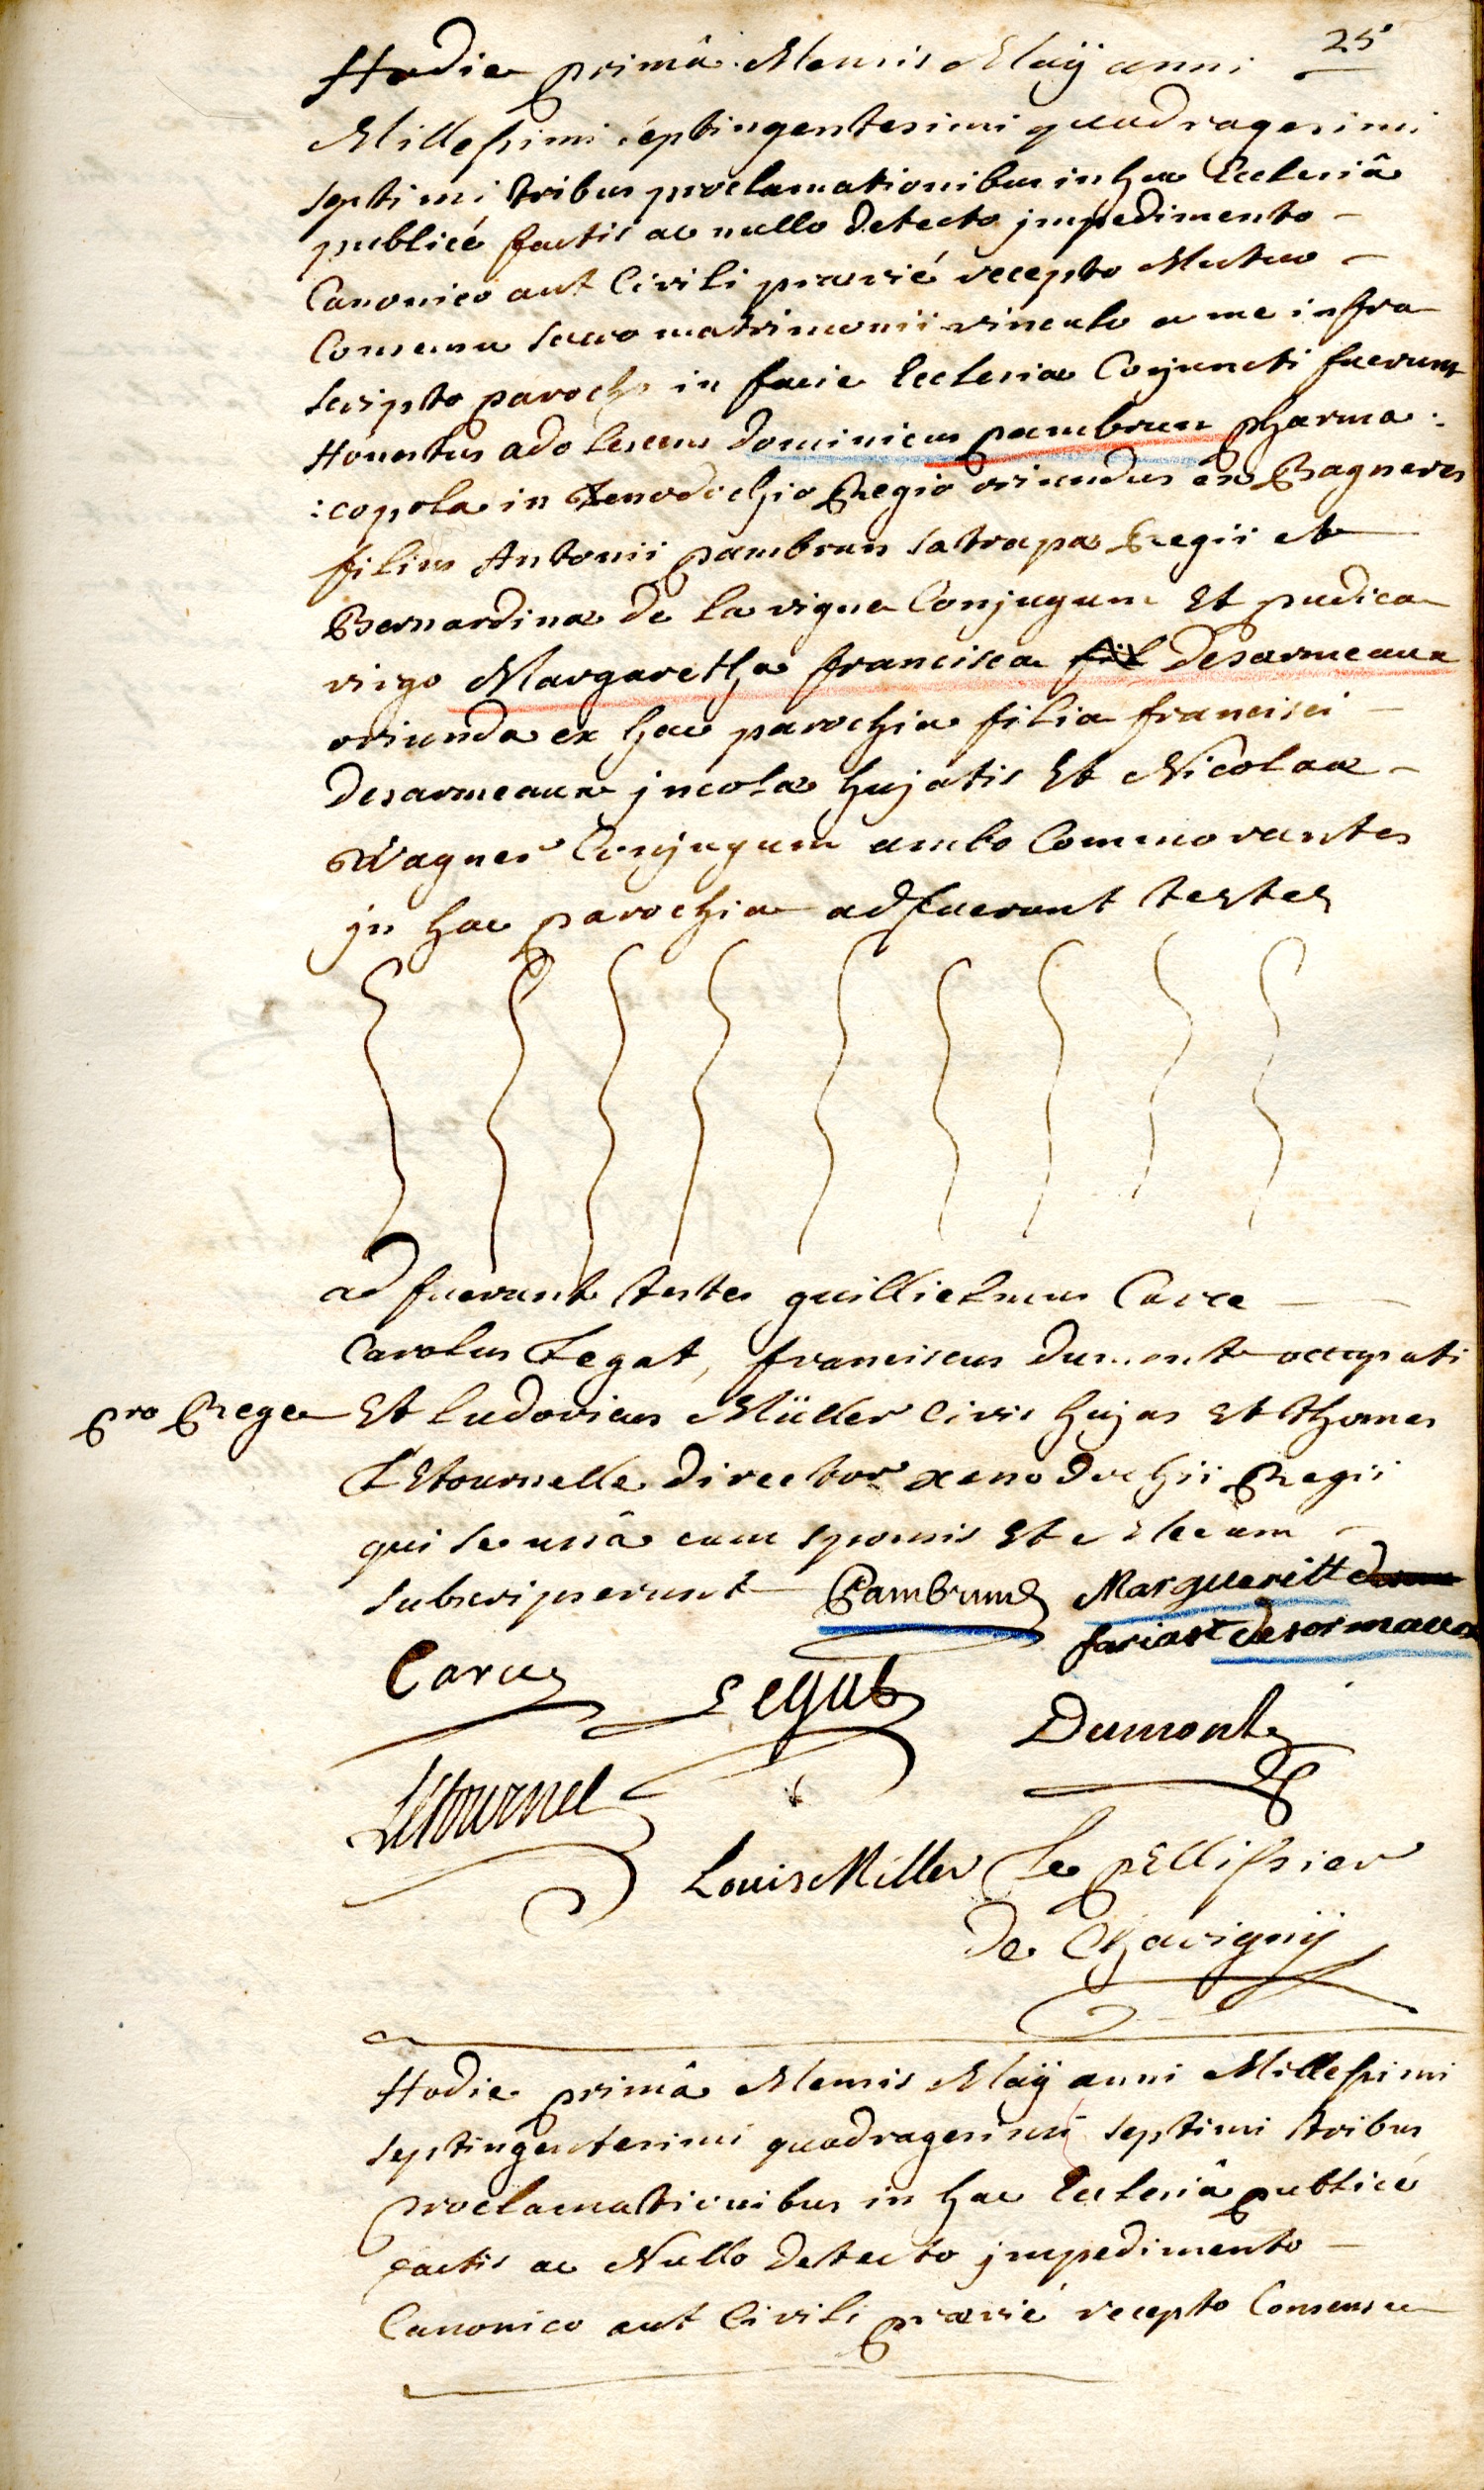 25
Hodie primâ Mensis Maÿ anni
Millessimi septingentesimi quadragesimi
septimi tribus proclamationibus in hac Ecclesiâ
publicé factis ac nullo detecto jmpedimento -
Canonico aut Civili prævié recepto Mutuo -
Consensu sacro matrimonii vinculo a me infra
scripto parocho in facie Ecclesiæ Conjuncti fuerunt
Honestus adolescens dominicus pambrun pharma:
:copola in Xenodochio Regio oriundus ex Bagneres
filius Antonii pambrun satrapæ Regii et
Bernardinæ de la vigne Conjugum Et pudica
virgo Margaretha francisca fil desarmeaux
oriunda ex hac parochia filia francisci -
desarmeaux jncolæ hujatis Et Nicolaæ -
Wagner Conjugum ambo Commorantes
jn hac parochia adfuerunt testes
adfuerunt testes guillielmus Carre -
Carolus Legat, franciscus dumont occupati
pro Rege Et ludovicus Müller Civis hujas Et thomas
LEtournelle director xenodochii Regii
qui se unâ cum sponsis Et Mecum -
subscripserunt Pambrun Margueritt
desormaux
Carré Legat
Dumont
Letournel
Louis Miller Le pEllissier
de Chavignÿ
Hodie primâ Mensis Maÿ anni Millessimi
septingentesimi quadragesimi septimi tribus
proclamationibus in hac Ecclesiâ publicé
factis ac Nullo detecto jmpedimento -
Canonico aut Civili prævié recepto Consensu